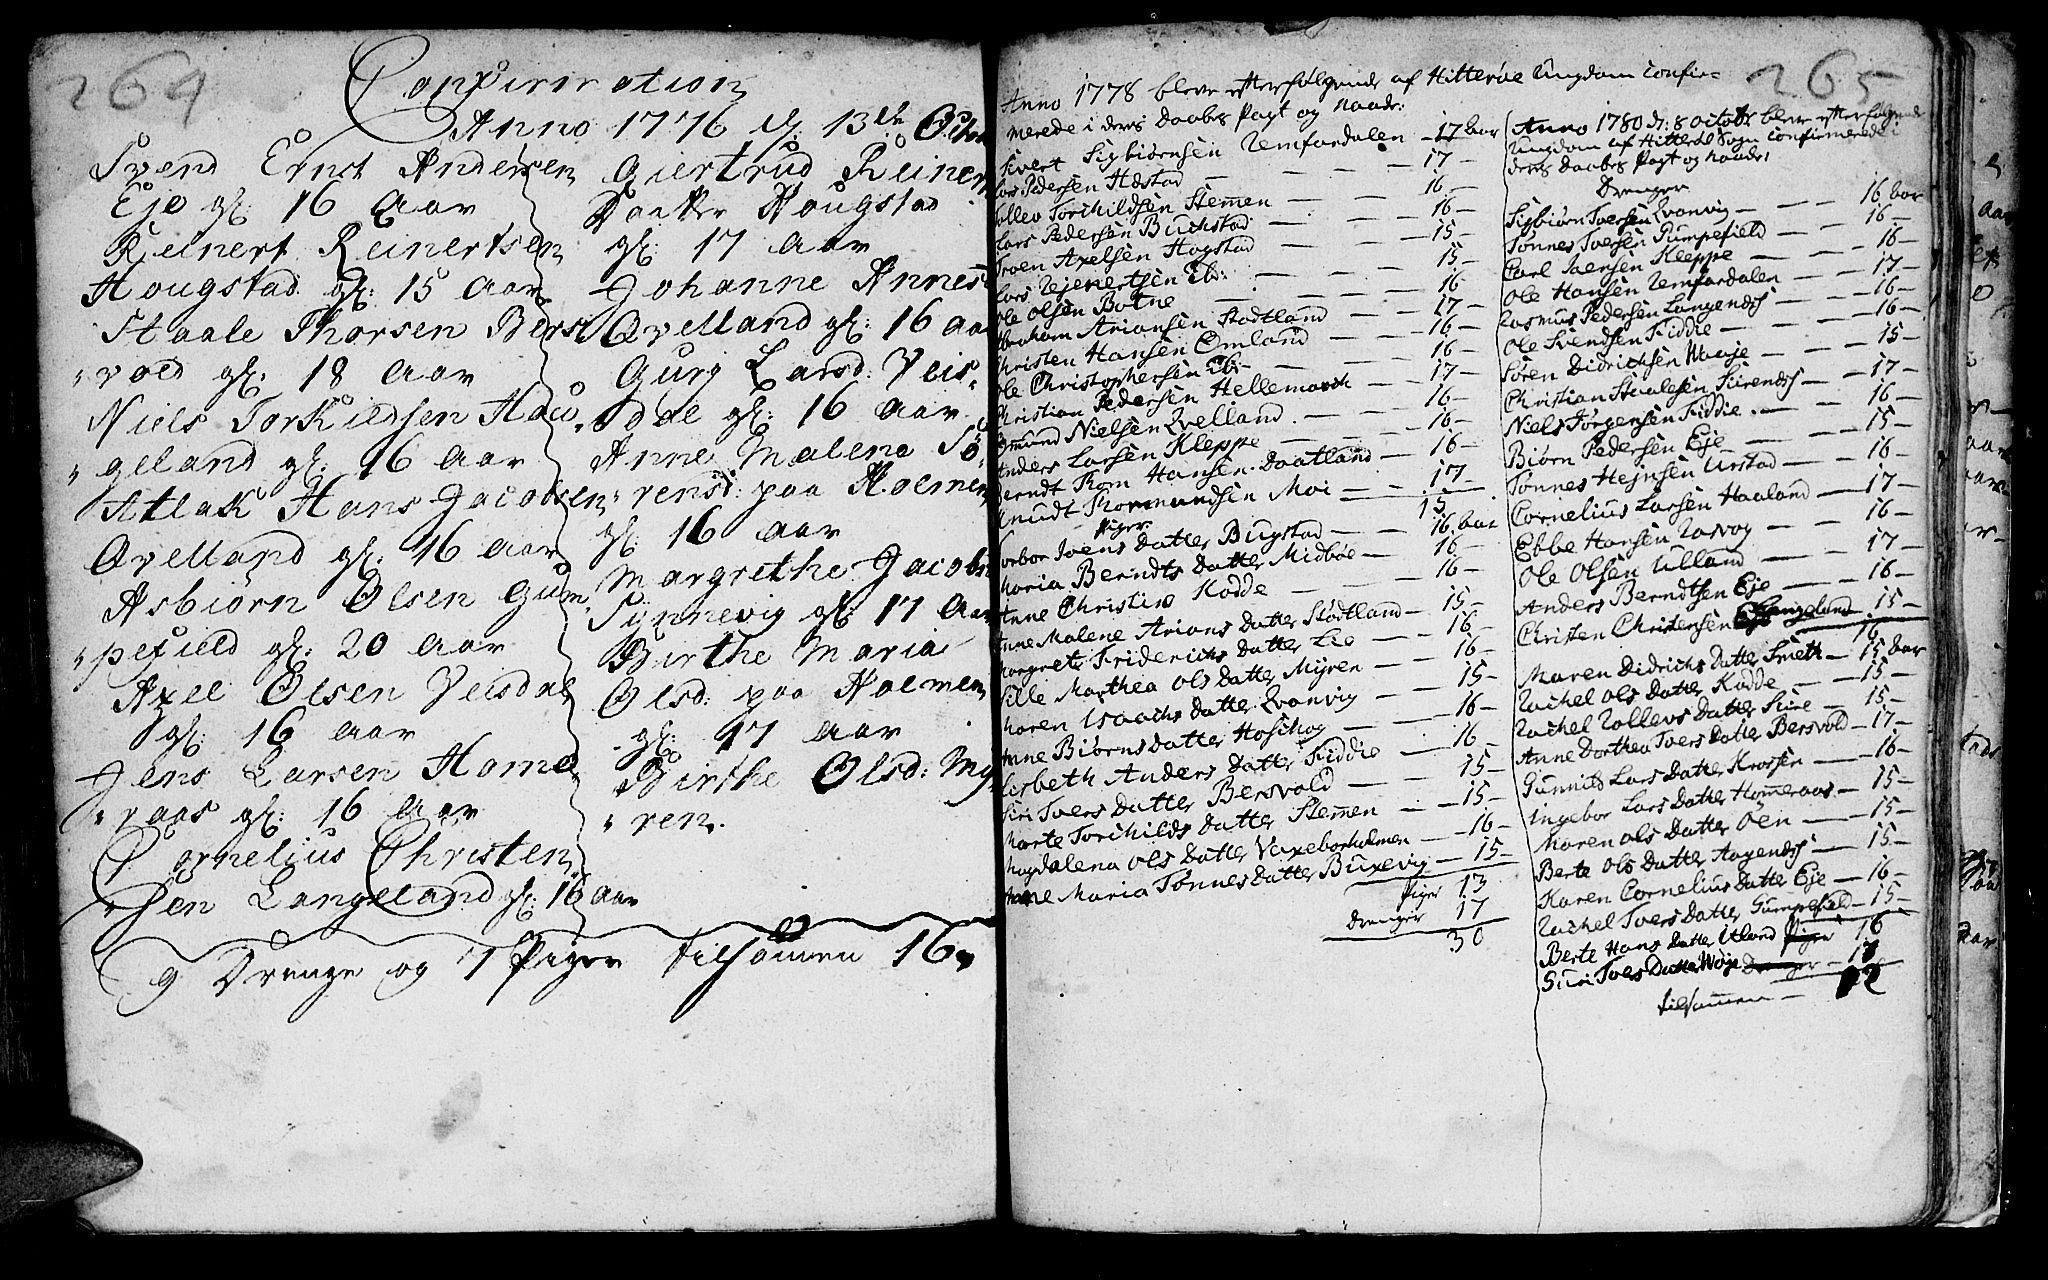 264
Confirmation
Anno 1776 d: 13de Octbr
Svend Ernst Andersen
Eje gl: 16 Aar
Reinert Reinertsen
Hougstad gl: 15 Aar
Staale Thorsen Bers
vold gl: 18 Aar
Niels Torkieldsen Hau
geland gl: 16 Aar
Atlak Hans Jacobsen
Qvelland gl: 16 Aar
Asbiørn Olsen Gum
pefield gl: 20 Aar
Axel Olsen Veisdal
gl: 16 Aar
Jens Larsen Home
raas gl: 16 Aar
Cornelius Christen
sen Langeland gl: 16 Aar
Giertrud Reiners
Daatter Hougstad
gl: 17 Aar
Johanne Annes
Qvelland gl: 16 Aar
Gurj Larsd: Veis
dal gl: 16 Aar
Anne Malena Sö
rensd: paa Holmen
gl: 16 Aar
Margrethe Jacobs
Synnevig gl: 17 Aar
Birthe Maria
Olsd: paa Holmen
gl: 17 Aar
Birthe Olsd: My
ren.
9 Drenge og 7 Piger tilsamen 16
265
Anno 1778 bleve efterfølgende af Hitterøe Ungdom Confir=
merede i deres Daabes Pagt og Naade:
Sivert Sigbiørnsen Remfardalen — 17 Aar
Lars Pedersen Hæstad — 17 —
Tollev Torchildsen Stemen — 16 —
Lars Pedersen Buchstad — 16 —
Troen Axelsen Hogstad — 15 —
Lars Rejnertsen Ib: — 15 —
Ole Olsen Botne — 16
Abraham Arionsen Stodtland — 17 —
Christen Hansen Omland — 16 —
Ole Christophersen Ib: — 16 —
Christian Pedersen Hellemarck — 17 —
Omund Nielsen Qvelland — 16 —
Anders Larsen Kleppe — 16 —
Berndt Thom Hansen Daatland — 16 —
Knudt Thormundsen Moi — 17 —
15
Piger
Torbor Ivers Datter Bugstad — 16 Aar
Maria Berndts Datter Midbøe — 16 —
Anne Christine Rodde — 16 —
Anne Malene Arions Datter Stodtland — 15 —
Margrete Friderichs Datter Lie — 16 —
Sille Marthea Ols Datter Myren — 16 —
Maren Isaachs Datter Qvanvig — 15 —
Anne Biørns Datter Hoschog — 16 —
Lisbeth Anders Datter Fiddie — 16
Siri Tvers Datter Bersvold — 15 —
Marte Torchilds Datter Stemen — 15 —
Magdalena Ols Datter Vaxeborholmen — 16 —
Anne Maria Tønnes Datter Buxevig — 15 —
Piger 13
Drenger 17
30
Anno 1780 d: 8 Octobr bleve efterfølgende
Ungdom af Hitterøe Sogn Confirmerede i
deres Daabes Pagt og Naade;
Drenger
Sigbiørn Tversen Qvanvig — 16 Aar
Tønnes Tversen Gumpefield — 16 —
Carl Iversen Kleppe — 16 —
Ole Hansen Remfardalen — 17 —
Rasmus Pedersen Langendsj — 16 —
Ole Svendsen Fiddie — 16 —
Søren Didrichsen Waaje — 15 —
Christian Staalesen Sirendsj — 17 —
Niels Jørgensen Fiddie — 16 —
Biørn Pedersen Eje — 15 —
Tønnes Hejnsen Urstad — 16 —
Cornelius Larsen Haaland — 17 —
Ebbe Hansen Rasvog — 16 —
Ole Olsen Ulland — 17 —
Anders Berndtsen Eje — 16 —
Christen Christensen Langeland 15 —
16
Maren Didrichs Datter Smeth — 15 Aar
Rachel Ols Datter Rodde — 15 —
Rachel Rollevs Datter Sire — 15 —
Anne Dorthea Tvers Datter Bersvold — 17 —
Gunnild Lars Datter Krossen — 16 —
Ingebor Lars Datter Homeraas — 15 —
Maren Ols Datter Øen — 15 —
Berte Ols Datter Aagendsj — 15 —
Karen Cornelius Datter Eje — 16 —
Rachel Tvers Datter Gumpefield — 15 —
Berte Hans Datter Utland Piger 16
Siri Tvers Datter Woje Drenger — 17
tilsammen —